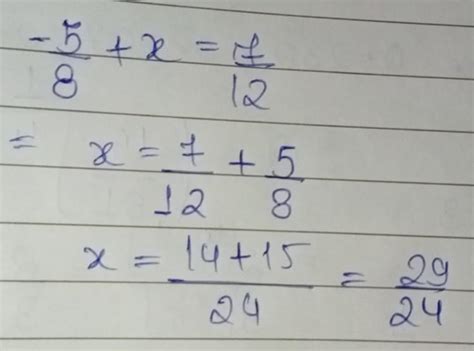 -5/8 + x = 7/12
= x = 7/12 + 5/8
x = 14+15/24 = 29/24